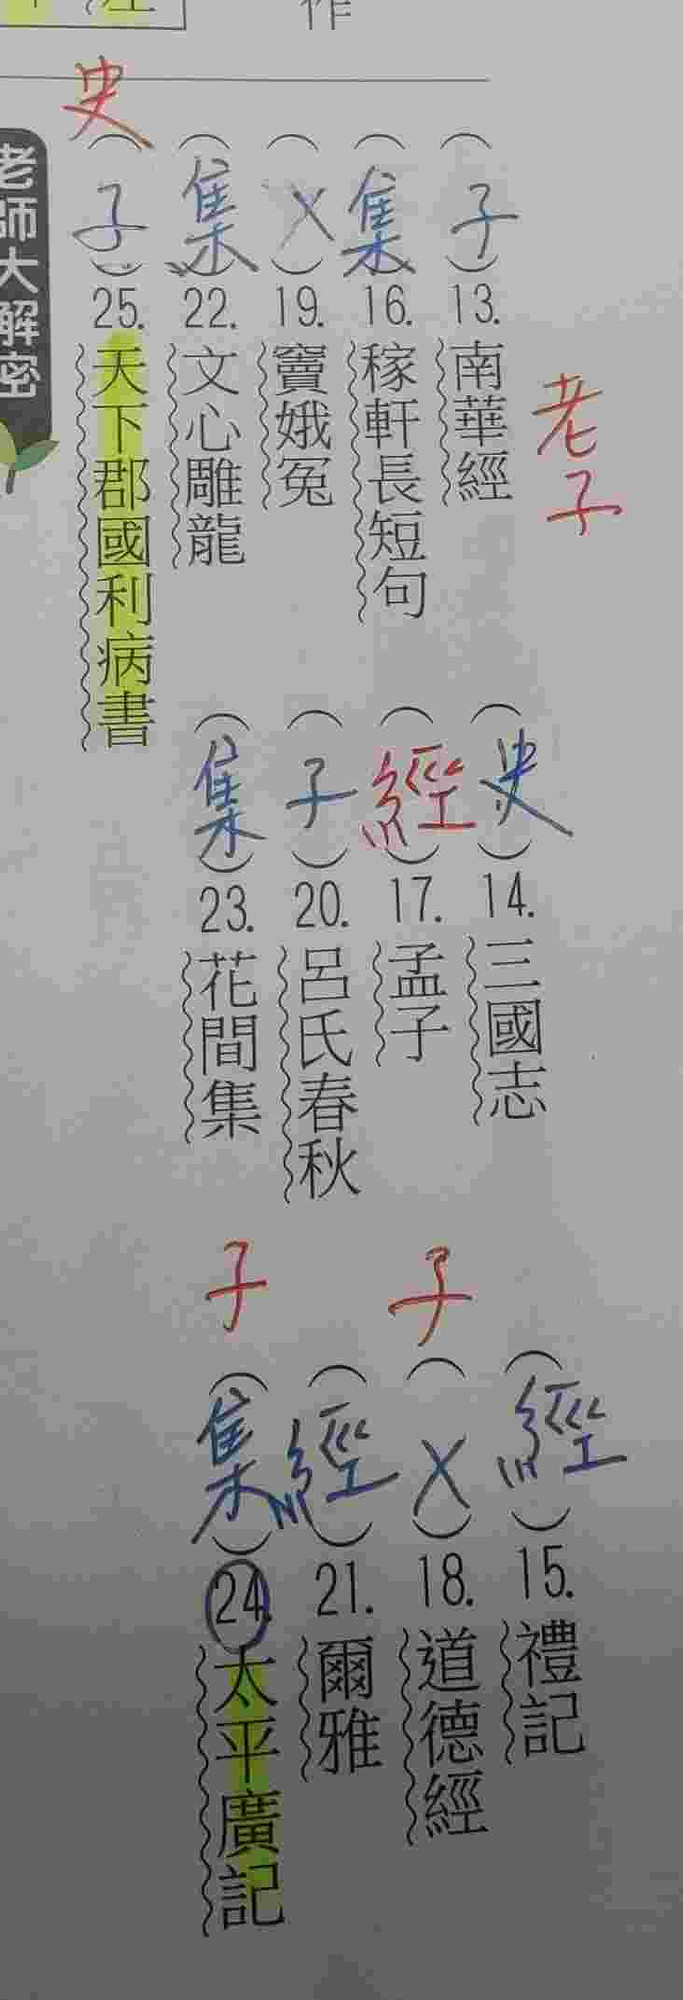 作
老子
(子)13.南華經
(史)14.三國志
(經)15.禮記
(集)16.稼軒長短句
(經)17.孟子
子
(X)18.道德經
(X)19.竇娥冤
(子)20.呂氏春秋
(經)21.爾雅
(集)22.文心雕龍
(集)23.花間集
子
(集)24.太平廣記
史
(子)25.天下郡國利病書
老師大解密